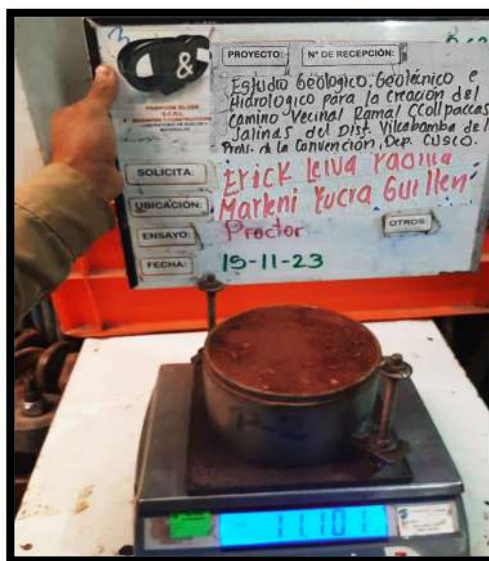 &
PROYECTO: N° DE RECEPCIÓN:
Estudio Geologico, Geotécnico e
Hidrologico para la creación del
Camino Vecinal Ramal CCollpaccasa
Salinas del Dist. Vilcabamba de la
Prov. de la Convención, Dep. Cusco.
SOLICITA: Erick Leiva Padilla
UBICACIÓN: Marleni Yucra Guillen
ENSAYO: Proctor OTROS:
FECHA: 19-11-23
P-2
11.101